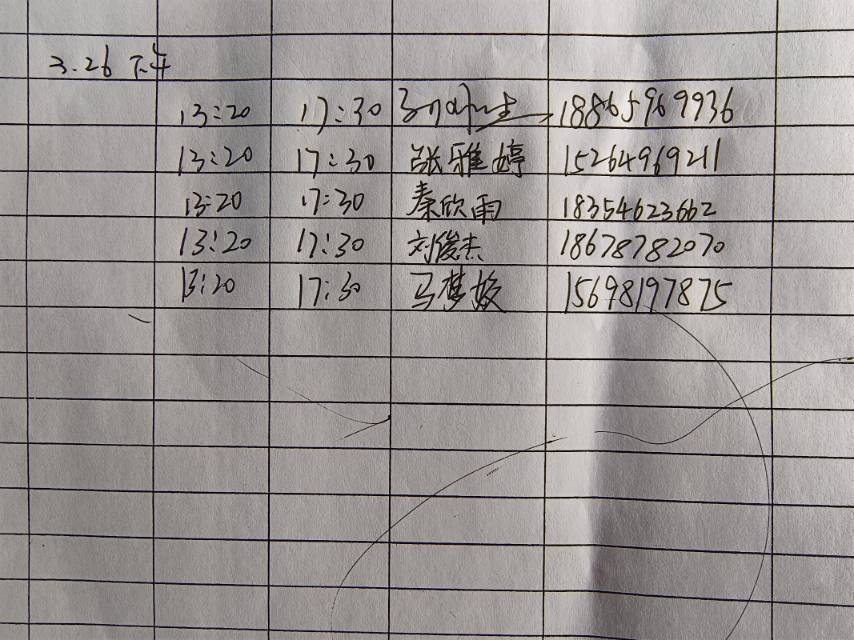 3.26 下午
13:20 17:30 18865969936
13:20 17:30 张雅婷 15264969211
13:20 17:30 秦欣雨 18354623662
13:20 17:30 刘俊杰 18678782070
13:20 17:30 马梦姣 15698197875